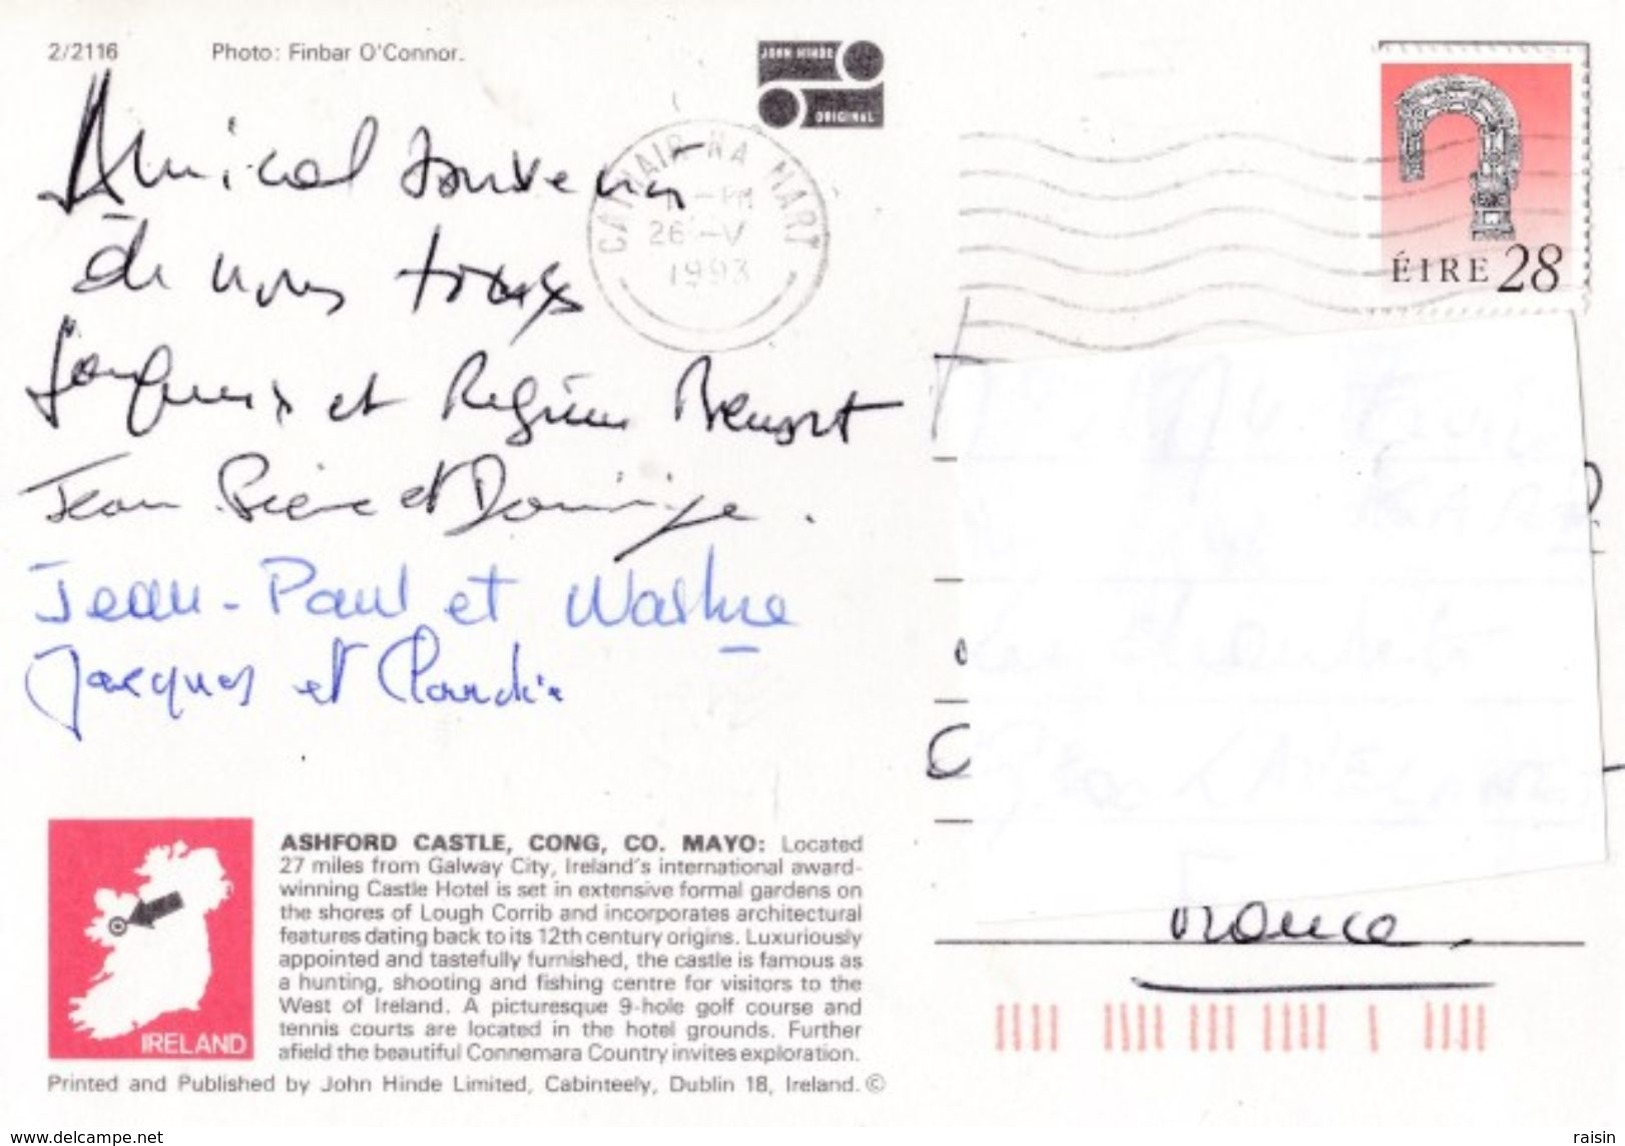 2/2116 Photo: Finbar O'Connor.
JOHN HINDE
ORIGINAL
Amical souvenir
de nous tous
Jacques et Régine
Jean Pierre et Dominique.
Jean-Paul et
Jacques et Claudie
CATHAIR NA MART
-PM
26 -V
1993
ÉIRE 28
France.
IRELAND
ASHFORD CASTLE, CONG, CO. MAYO: Located
27 miles from Galway City, Ireland's international award-
winning Castle Hotel is set in extensive formal gardens on
the shores of Lough Corrib and incorporates architectural
features dating back to its 12th century origins. Luxuriously
appointed and tastefully furnished, the castle is famous as
a hunting, shooting and fishing centre for visitors to the
West of Ireland. A picturesque 9-hole golf course and
tennis courts are located in the hotel grounds. Further
afield the beautiful Connemara Country invites exploration.
Printed and Published by John Hinde Limited, Cabinteely, Dublin 18, Ireland. ©
www.delcampe.net
raisin